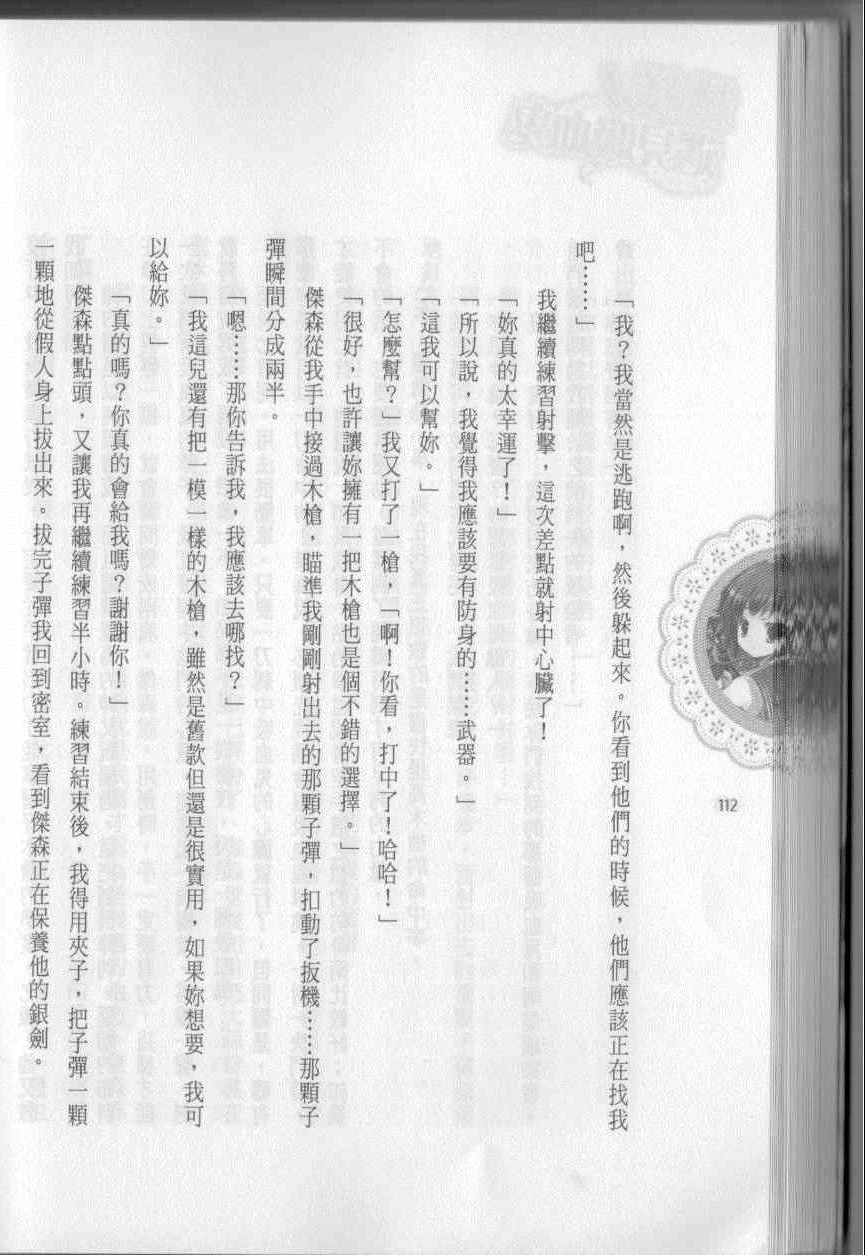 「我？我當然是逃跑啊，然後躲起來。你看到他們的時候，他們應該正在找我
吧……」
我繼續練習射擊，這次差點就射中心臟了！
「妳真的太幸運了！」
「所以說，我覺得我應該要有防身的……武器。」
「這我可以幫妳。」
「怎麼幫？」我又打了一槍，「啊！你看，打中了！哈哈！」
「很好，也許讓妳擁有一把木槍也是個不錯的選擇。」
傑森從我手中接過木槍，瞄準我剛剛射出去的那顆子彈，扣動了扳機……那顆子
彈瞬間分成兩半。
「嗯……那你告訴我，我應該去哪找？」
「我這兒還有把一模一樣的木槍，雖然是舊款但還是很實用，如果妳想要，我可
以給妳。」
「真的嗎？你真的會給我嗎？謝謝你！」
傑森點點頭，又讓我再繼續練習半小時。練習結束後，我得用夾子，把子彈一顆
一顆地從假人身上拔出來。拔完子彈我回到密室，看到傑森正在保養他的銀劍。
112